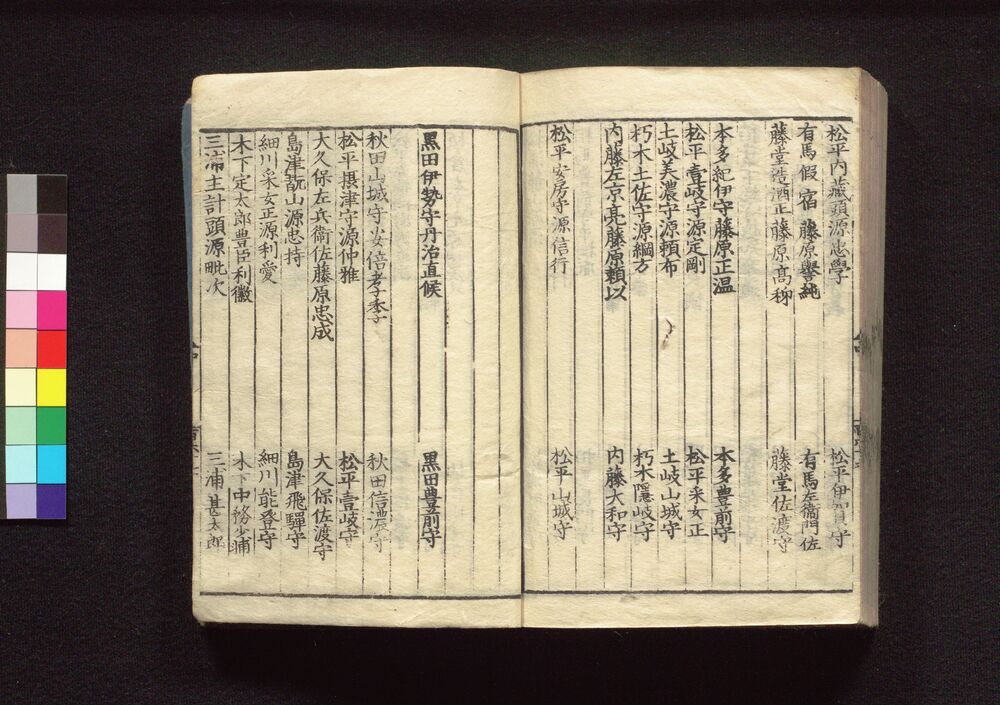 松平内藏頭源忠學 松平伊賀守
有馬假宿藤原譽純 有馬左衞門佐
藤堂造酒正藤原髙 藤堂佐渡守
本多紀伊守藤原正温 本多豊前守
松平壹岐守源定剛 松平采女正
土岐美濃守源頼布 土岐山城守
朽木土佐守源綱方 朽木隱岐守
内藤左京亮藤原頼以 内藤大和守
松平安房守源信行 松平山城守
黒田伊勢守丹治直候 黒田豊前守
秋田山城守安倍孝季 秋田信濃守
松平摂津守源仲雅 松平壹岐守
大久保左兵衞佐藤原忠成 大久保佐渡守
島津翫山源忠持 島津飛驒守
細川采女正源利愛 細川能登守
木下定太郎豊臣利徽 木下中務少輔
三浦主計頭源毗次 三浦甚太郎